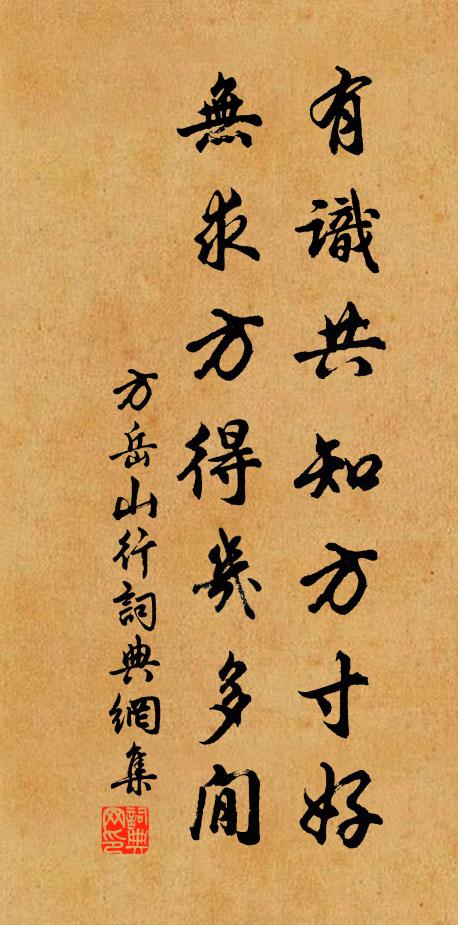 有識共知方寸好
無求方得幾多閒
方岳山行詞典網集
詞典
网印